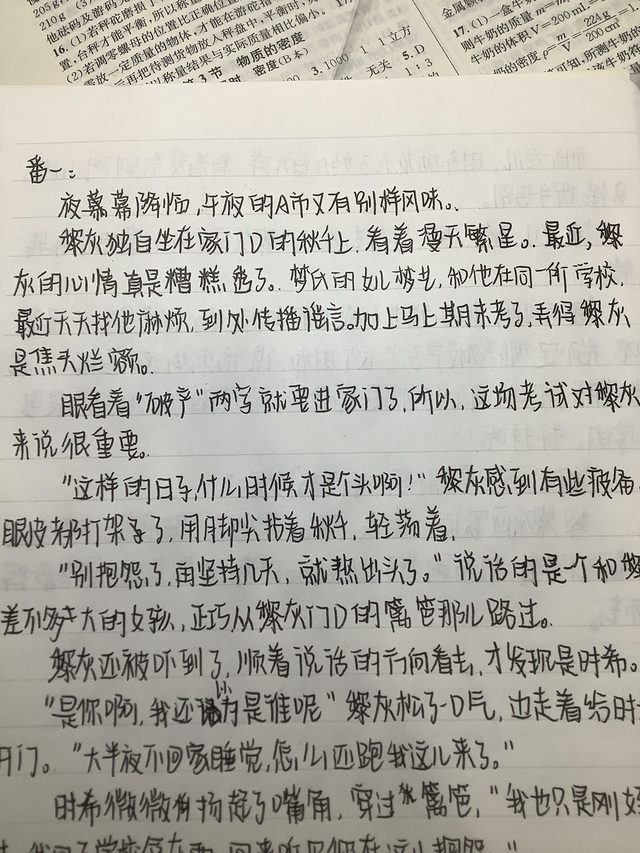 205g
210g
他砝码及游码
16. (1)若秤砣磨损了
置,台秤才能平衡,所以称量
(2)若调零螺母的位置比正确位置
零放一定质量的物体,才能在游砣指
后再把待测货物放入秤盘中,平衡时,
以称量结果与实际质量相比偏小。
第3节 物质的密度
密度(B本)
3. 1000 1 1立方
无关 5. D
1:3
17. (1)一盒牛
则牛奶的质量 m=
牛奶的体积 V=200 mL=
奶的密度 ρ=m/V=224 g/200
可知,所测牛奶的
番一:
夜幕幕降临,午夜的A市又有别样风味。
黎灰独自坐在家门口的秋千上,看着漫天繁星。最近,黎
灰的心情真是糟糕透了。梦氏的女儿梦艺,和他在同一所学校,
最近天天找他麻烦,到处传播谣言。加上马上期末考了,弄得黎灰
是焦头烂额。
眼看着“破产”两字就要进家门了,所以,这场考试对黎灰
来说很重要。
“这样的日子,什么时候才是个头啊!”黎灰感到有些疲惫,
眼皮都打架子了,用脚尖抬着秋千,轻荡着,
“别抱怨了,再坚持几天,就熬出头了。”说话的是一个和黎
差不多大的女孩,正巧从黎灰门口的篱笆那儿路过。
黎灰还被吓到了,顺着说话的方向看去,才发现是时希。
“是你啊,我还以为是谁呢”黎灰松了一口气,边走着给时
开门。“大半夜不回家睡觉,怎么还跑我这儿来了。”
时希微微扬起了嘴角,穿过篱笆,“我也只是刚好
我回了学校
回来听见你在这儿抱怨。”